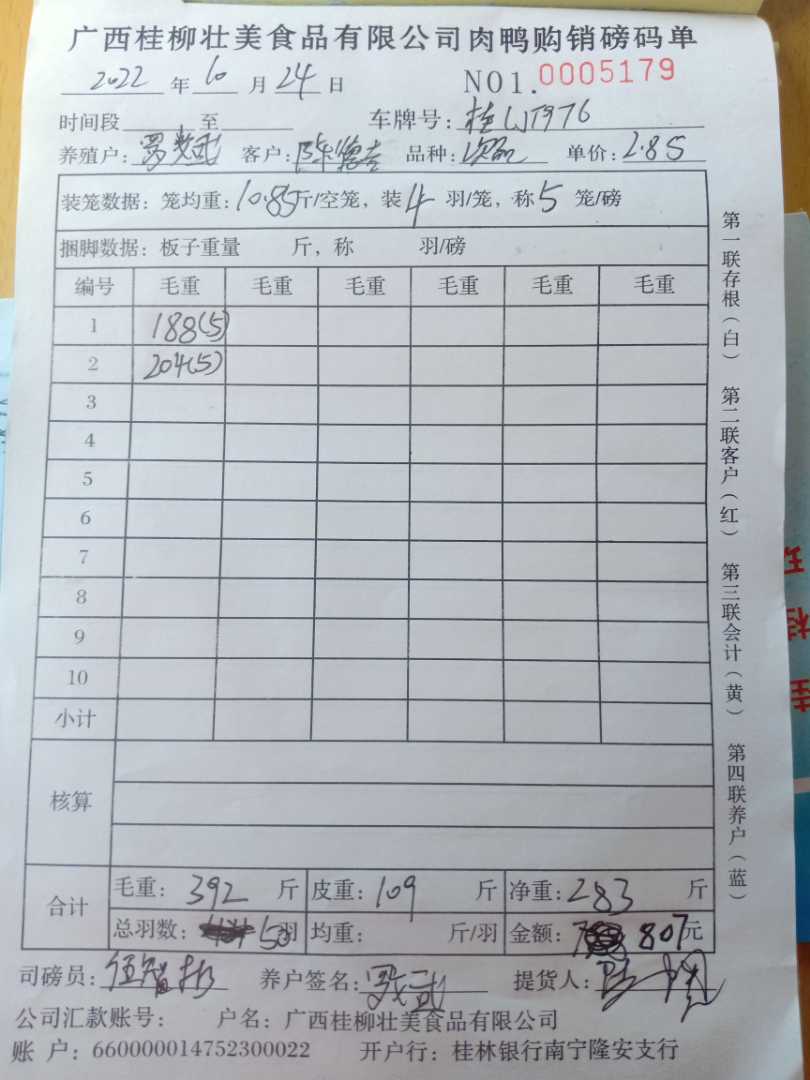 广西桂柳壮美食品有限公司肉鸭购销磅码单
2022年10月24日 NO1.0005179
时间段 至 车牌号:桂
养殖户: 客户:陈德 品种:次品 单价:2.85
装笼数据:笼均重:10.85斤/空笼,装4羽/笼,称5笼/磅
捆脚数据:板子重量 斤,称 羽/磅
编号 毛重 毛重 毛重 毛重 毛重 毛重
1 188(5)
2 204(5)
3
4
5
6
7
8
9
10
小计
核算
合计 毛重:392斤 皮重:109斤 净重:283斤
总羽数:50羽 均重: 斤/羽 金额:807元
司磅员: 养户签名: 提货人:
公司汇款账号: 户名:广西桂柳壮美食品有限公司
账 户:660000014752300022 开户行:桂林银行南宁隆安支行
第一联存根(白)
第二联客户(红)
第三联会计(黄)
第四联养户(蓝)